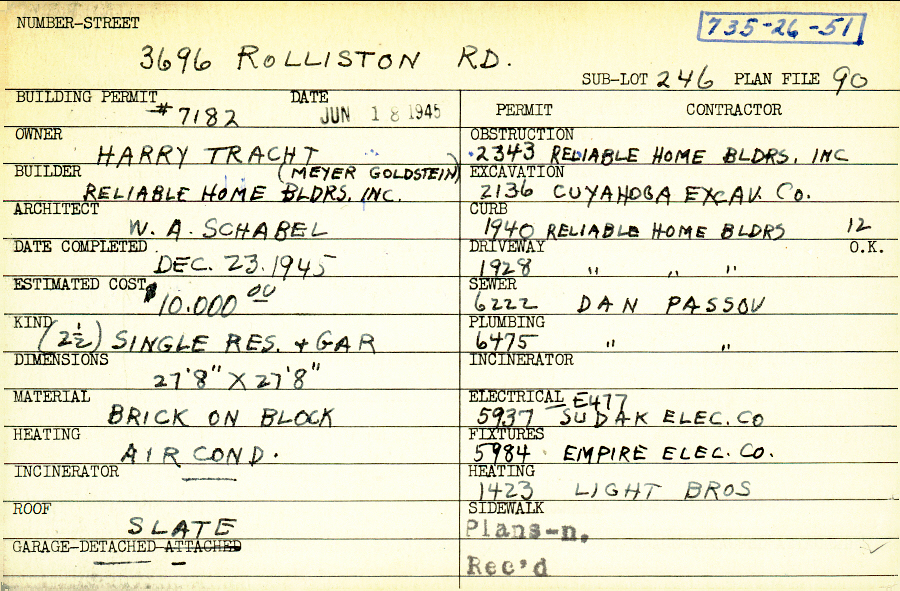 NUMBER-STREET
735-26-51
3696 ROLLISTON RD.
SUB-LOT 246 PLAN FILE 90
BUILDING PERMIT #7182
DATE JUN 18 1945
OWNER
HARRY TRACHT
BUILDER (MEYER GOLDSTEIN)
RELIABLE HOME BLDRS. INC.
ARCHITECT
W. A. SCHABEL
DATE COMPLETED
DEC. 23. 1945
ESTIMATED COST
$10.000 00
KIND
(2½) SINGLE RES. + GAR
DIMENSIONS
27'8" X 27'8"
MATERIAL
BRICK ON BLOCK
HEATING
AIR COND.
INCINERATOR
ROOF
SLATE
GARAGE-DETACHED-ATTACHED
PERMIT CONTRACTOR
OBSTRUCTION
2343 RELIABLE HOME BLDRS. INC
EXCAVATION
2136 CUYAHOGA EXCAV. CO.
CURB
1940 RELIABLE HOME BLDRS 12
DRIVEWAY O.K.
1928 " " "
SEWER
6222 DAN PASSOV
PLUMBING
6475 " "
INCINERATOR
ELECTRICAL E477
5937 SUDAK ELEC. CO
FIXTURES
5984 EMPIRE ELEC. CO.
HEATING
1423 LIGHT BROS
SIDEWALK
Plans-n.
Rec'd